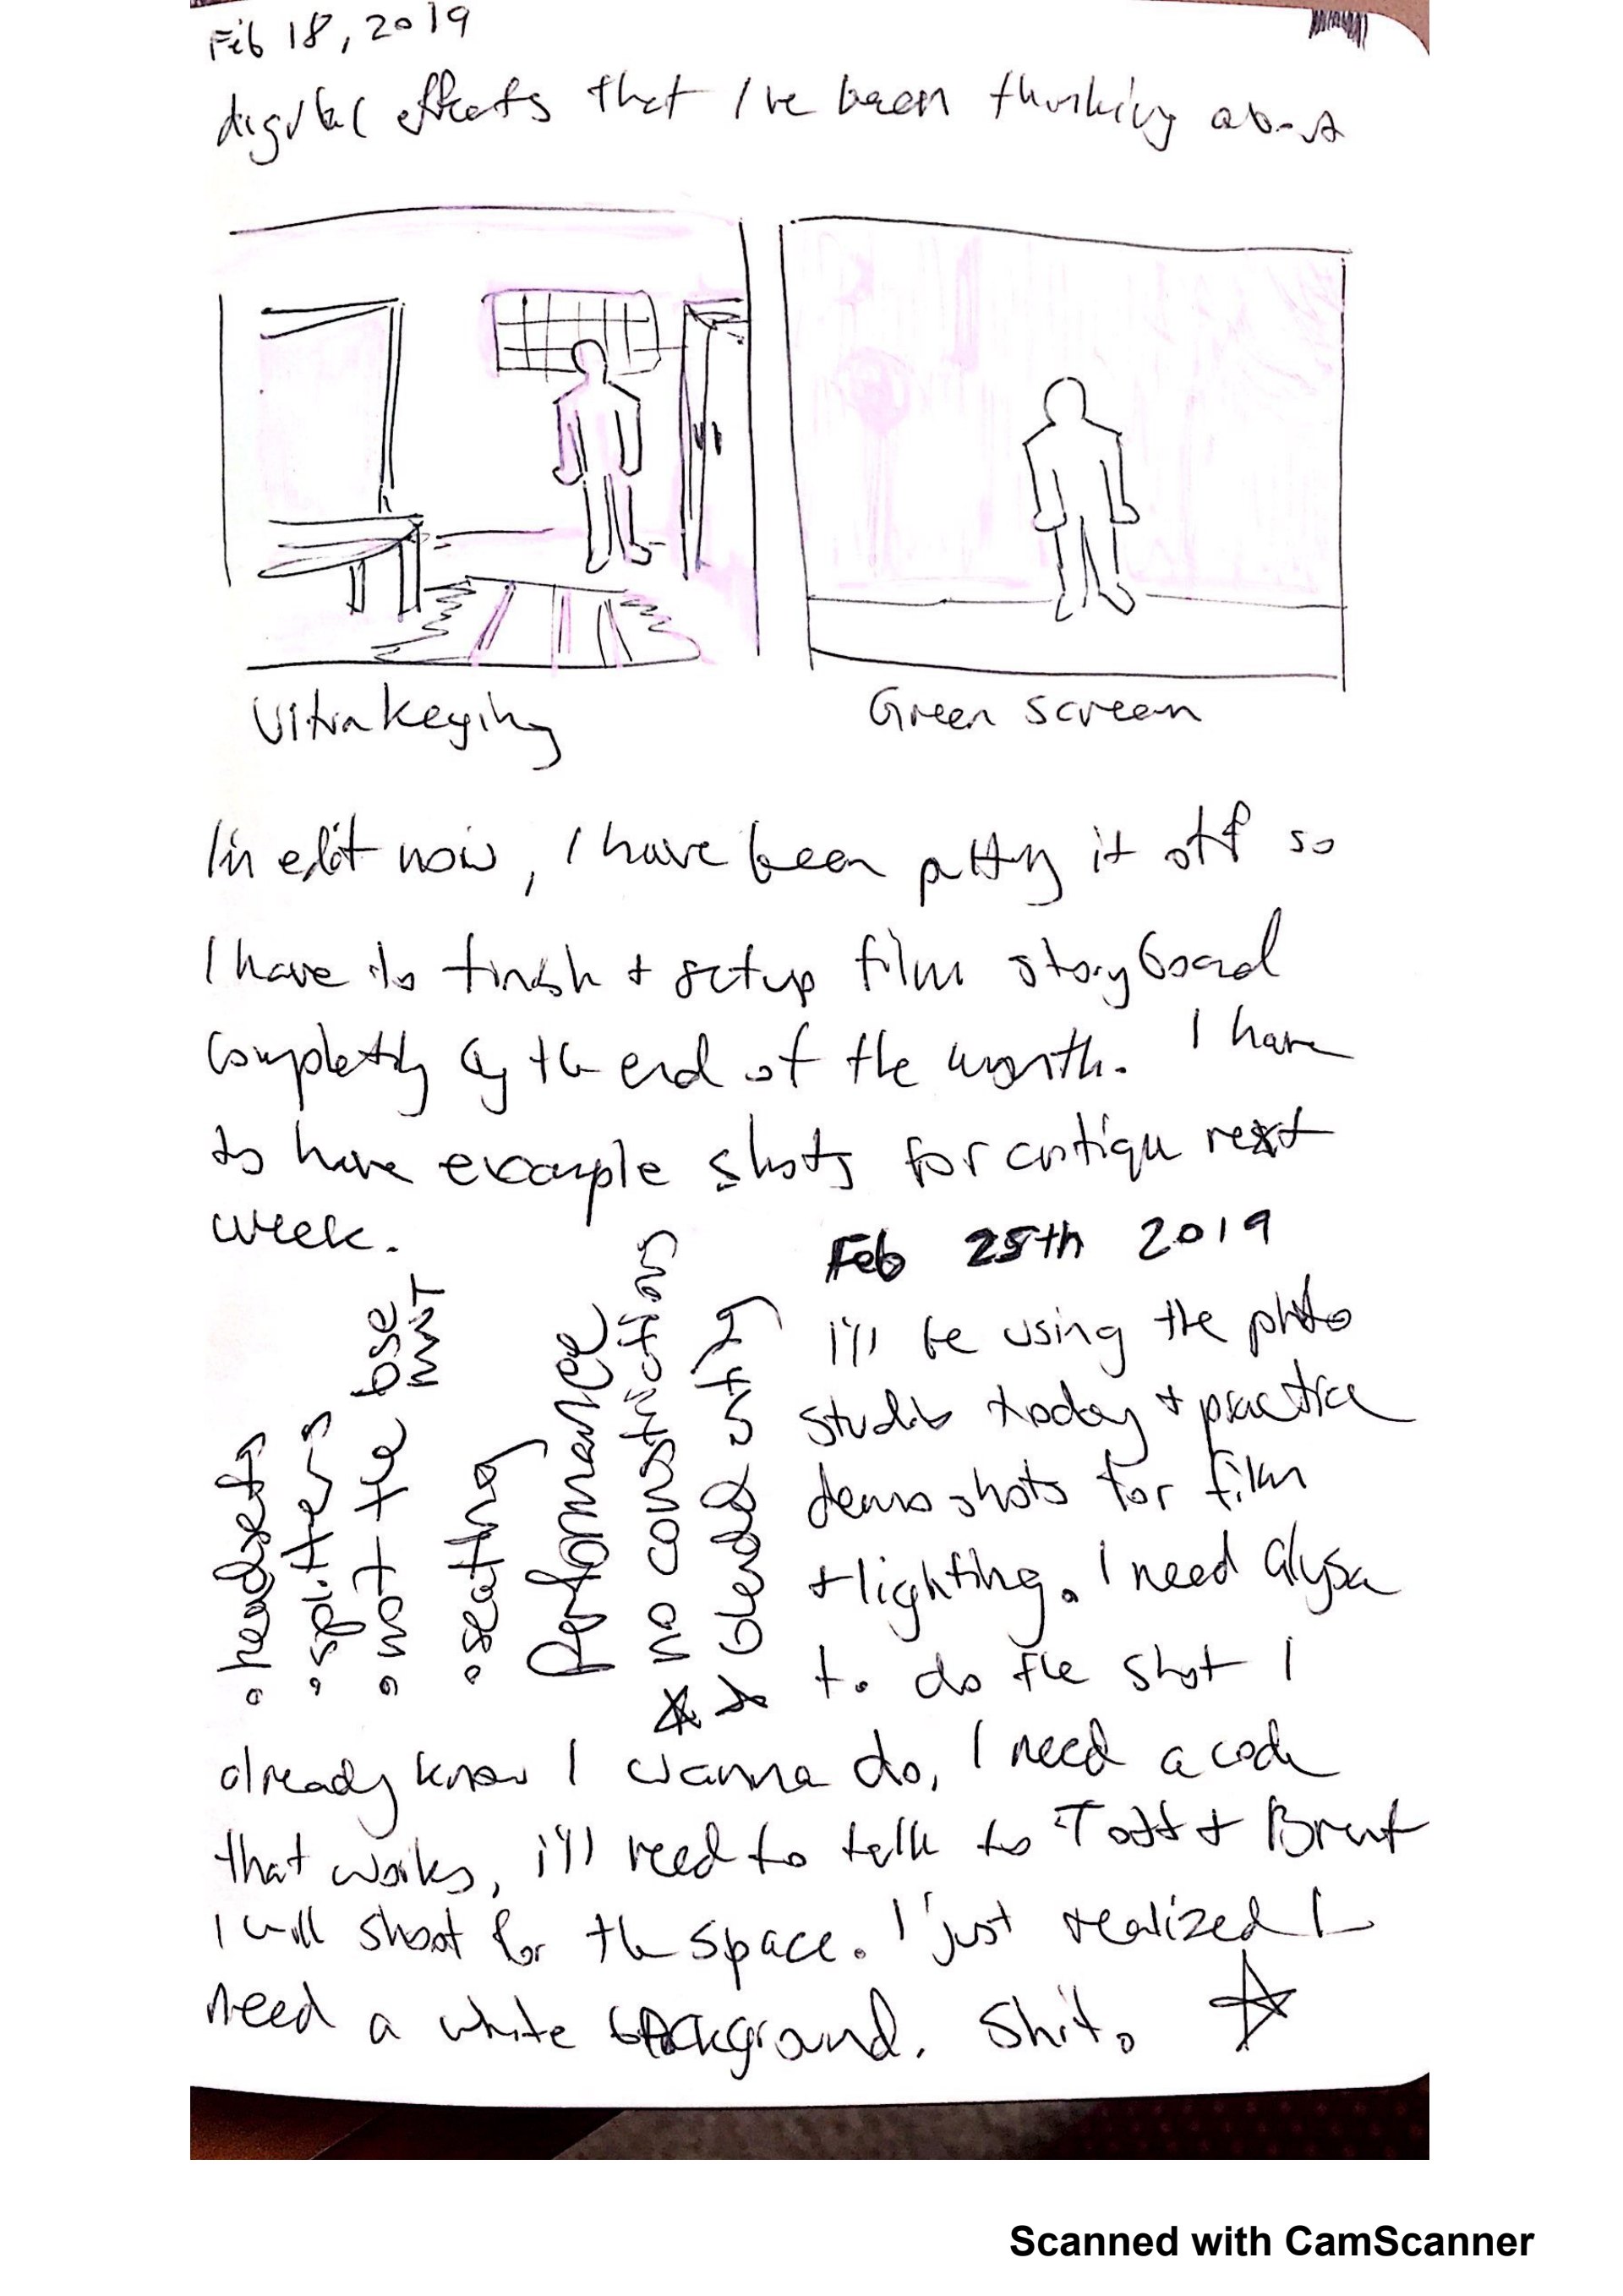 Feb 18, 2019
digital effects that I've been thinking about
Ultra keying
Green screen
I'm edit now, I have been putting it off so
I have to finish + setup film storyboard
completely by the end of the month. I have
to have example shots for critique next
week.
• headsets
• splitters
• not the bse
mnt
• seating
Performance
☆ no constrictions
☆ blends
Feb 25th 2019
i'll be using the photo
studio today + practice
demo shots for film
+ lighting. I need alysa
to do the shot I
already know I wanna do, I need a code
that works, i'll need to talk to + Brent
I will shoot for the space. I just realized I
need a white background. Shit. ☆
Scanned with CamScanner